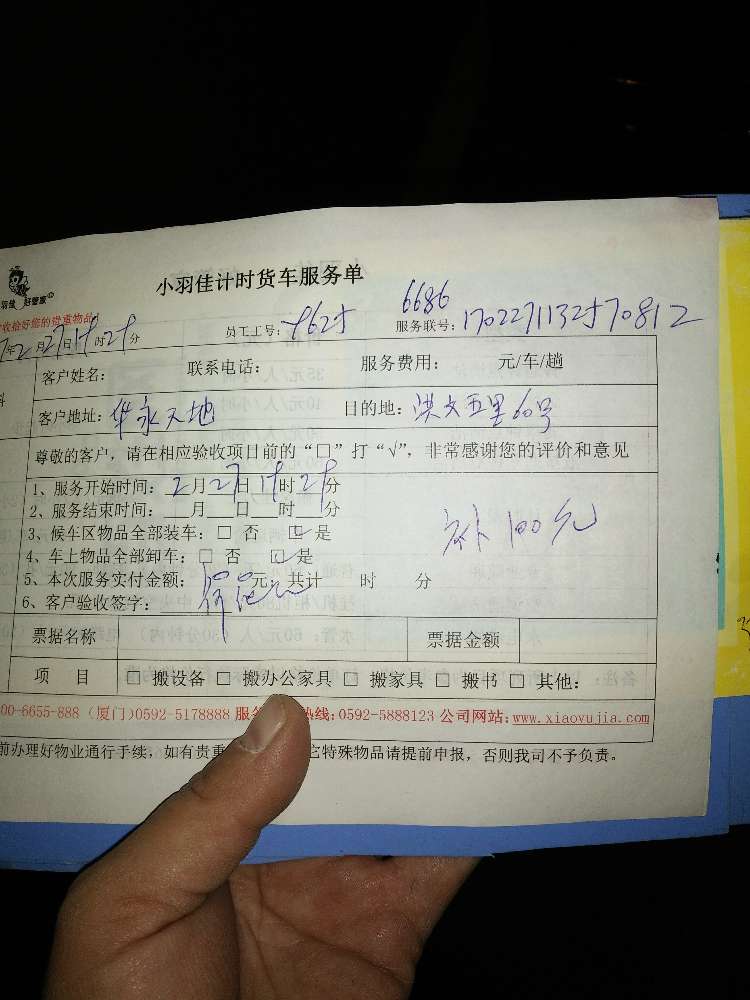 小羽佳计时货车服务单
好管家
收拾好您的贵重物品!
6686
年2月27日 时 分 员工工号: 8625 服务联号: 1702271132570812
客户姓名: 联系电话: 服务费用: 元/车/趟
客户地址: 华永天地 目的地: 洪文五里60号
尊敬的客户,请在相应验收项目前的“□”打“√”,非常感谢您的评价和意见
1、服务开始时间: 2月27日 时 分
2、服务结束时间: 月 日 时 分
3、候车区物品全部装车: □ 否 □ 是
补100元
4、车上物品全部卸车: □ 否 □ 是
5、本次服务实付金额: 元; 共计 时 分
6、客户验收签字:
票据名称 票据金额
项 目 □ 搬设备 □ 搬办公家具 □ 搬家具 □ 搬书 □ 其他:
00-6655-888 (厦门)0592-5178888 服 热线:0592-5888123 公司网站:www.xiaoyujia.com
前办理好物业通行手续,如有贵重 它特殊物品请提前申报,否则我司不予负责。